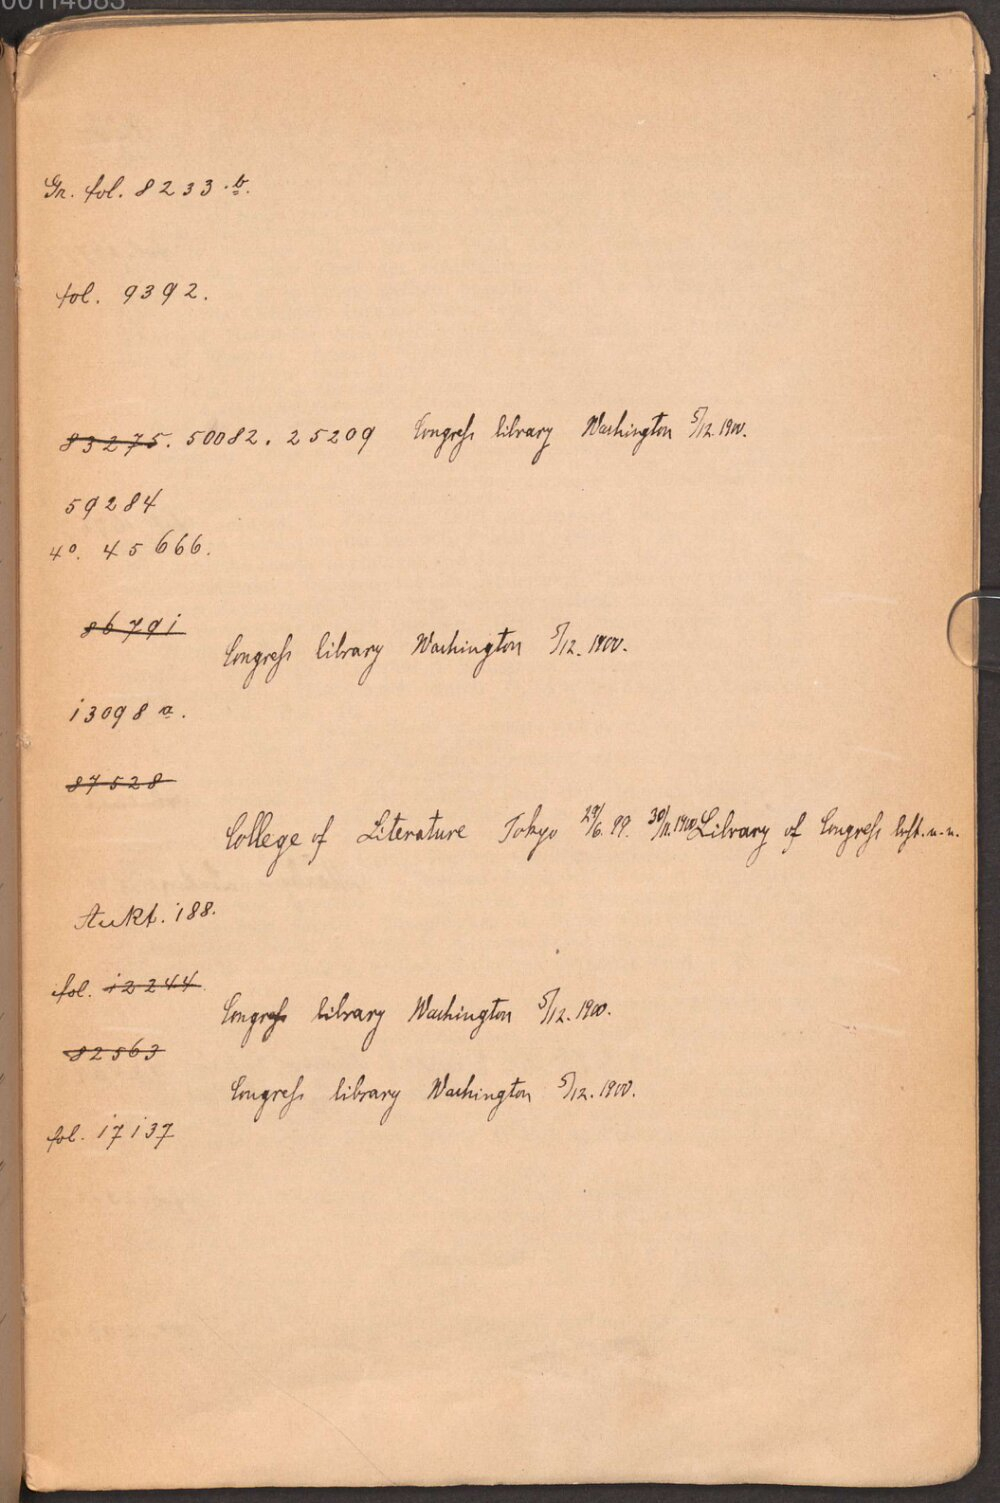 00114683
Gr. fol. 8233.b.
fol. 9392.
83275. 50082. 25209 Congress library Washington 5/12. 1900.
59284
4°. 45666.
86791
Congress library Washington 5/12. 1900.
13098 a.
87528
College of Literature Tokyo 29/6. 99. 30/11. 1900 Library of Congress
Aukt. 188.
fol. 12244
Congress library Washington 5/12. 1900.
82563
Congress library Washington 5/12. 1900.
fol. 17137